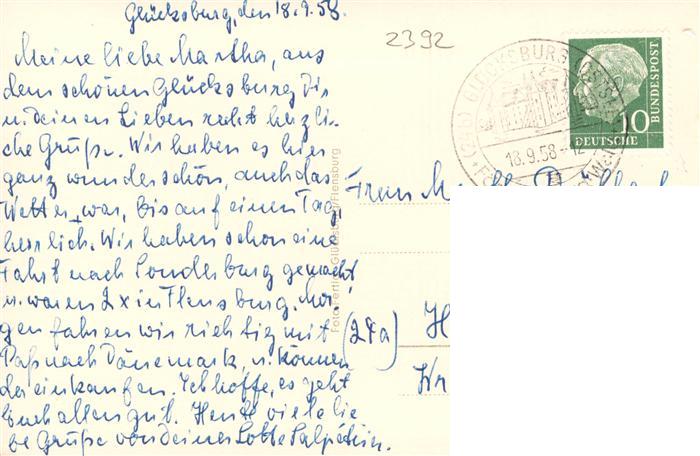 Glücksburg, den 18.9.58.
Meine liebe Martha, aus
dem schönen Glücksburg Dir
u. deinen Lieben recht herzli-
che Grüße. Wir haben es hier
ganz wunderschön, auch das
Wetter war, bis auf einen Tag,
herrlich. Wir haben schon eine
Fahrt nach Sonderburg gemacht
u. waren 2x in Flensburg. Mor-
gen fahren wir richtig mit
Paß nach Dänemark, u. können
da einkaufen. Ich hoffe, es geht
Euch allen gut. Heute viele lie-
be Grüße von deiner Lotte
2392
(24b) GLÜCKSBURG (OSTSEE)
18.9.58-12
10
DEUTSCHE
BUNDESPOST
Frau
(24a) H
Foto Glücksburg/Flensburg